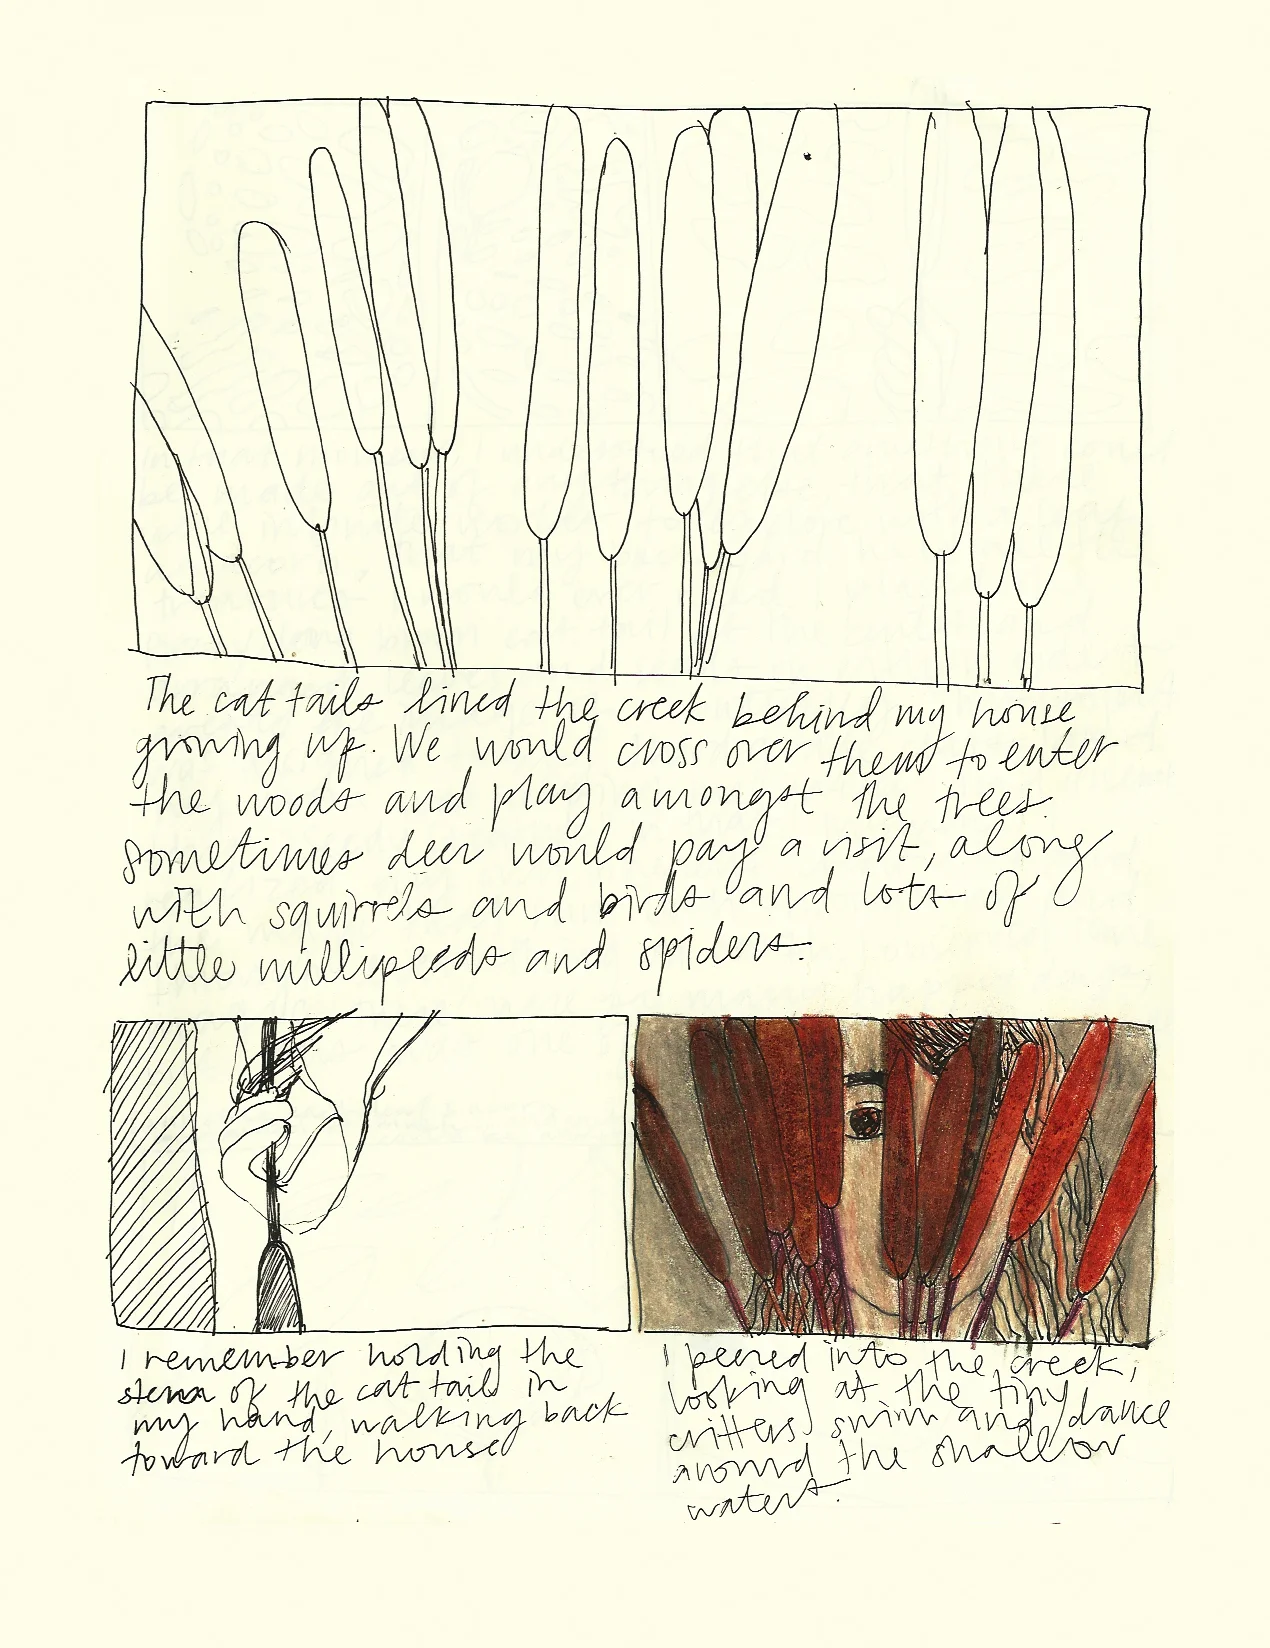 The cat tails lined the creek behind my house
growing up. We would cross over them to enter
the woods and play amongst the trees.
Sometimes deer would pay a visit, along
with squirrels and birds and lots of
little millipeeds and spiders.
I remember holding the
stem of the cat tail in
my hand, walking back
toward the house
I peered into the creek,
looking at the tiny
critters swim and dance
around the shallow
waters.